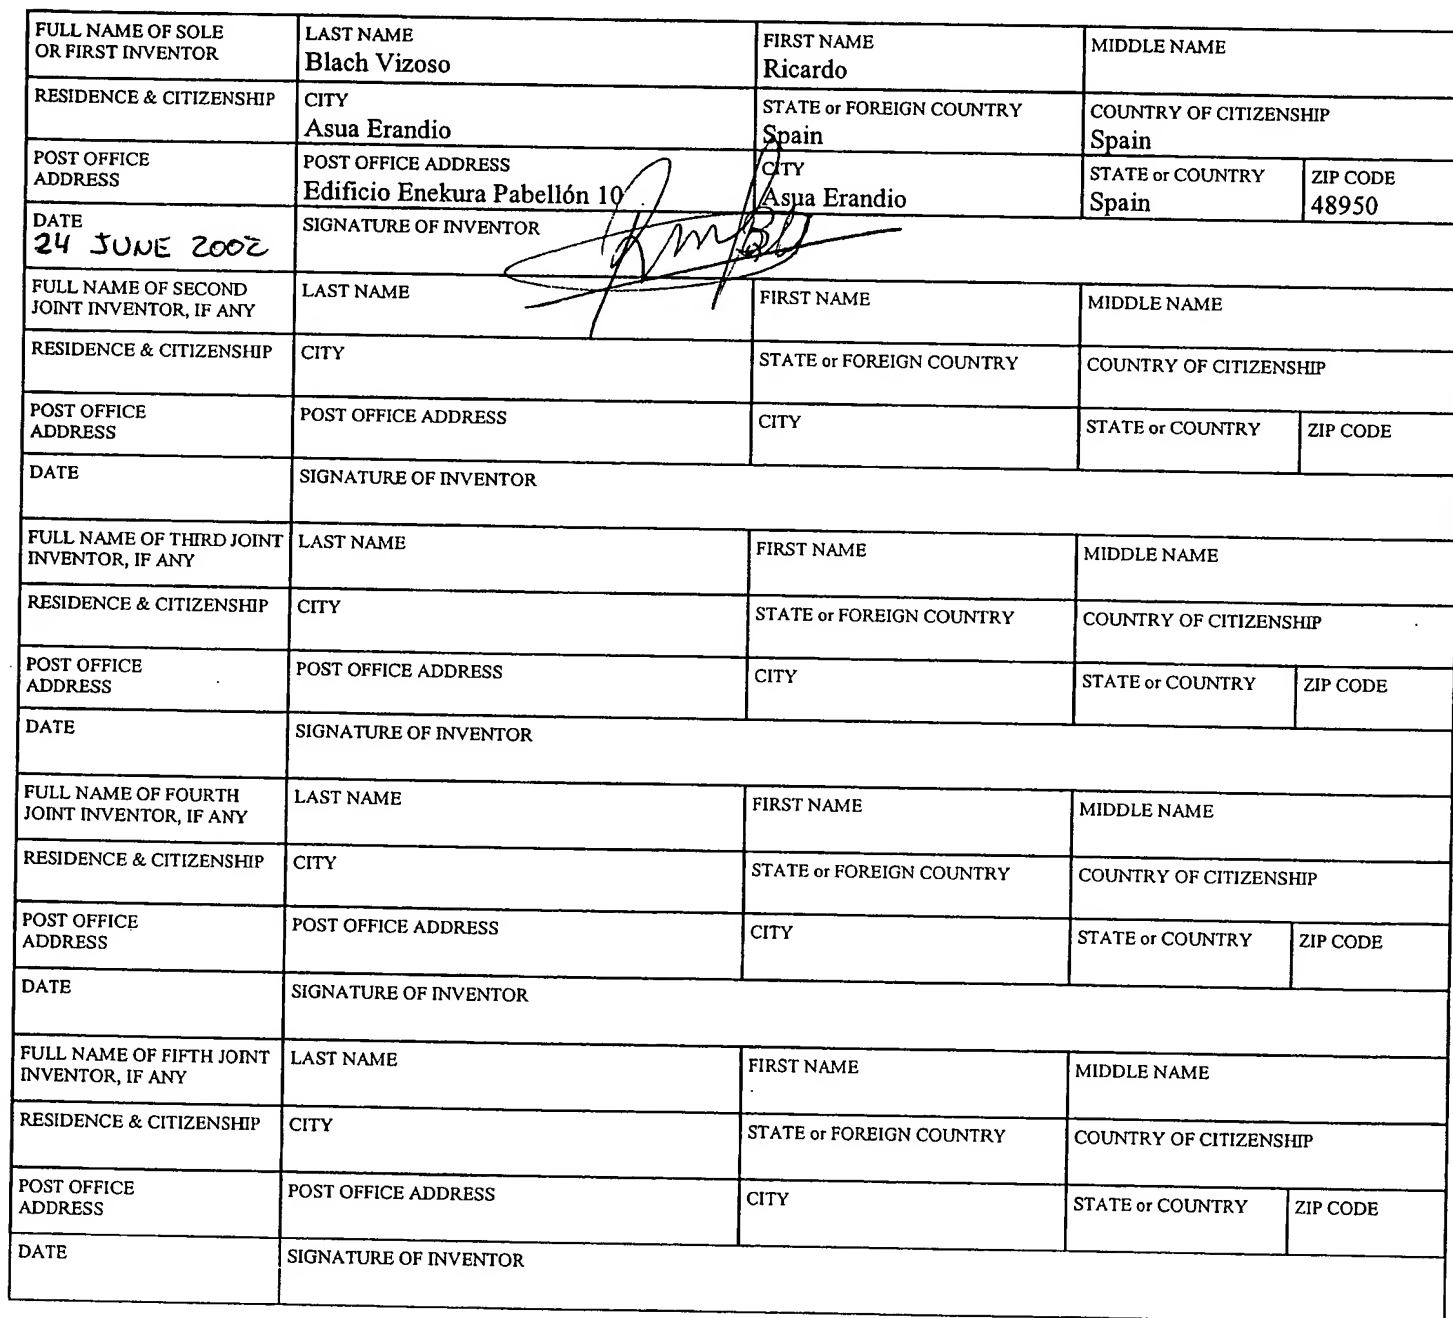 FULL NAME OF SOLE OR FIRST INVENTOR
LAST NAME
Blach Vizoso
FIRST NAME
Ricardo
MIDDLE NAME
RESIDENCE & CITIZENSHIP
CITY
Asua Erandio
STATE or FOREIGN COUNTRY
Spain
COUNTRY OF CITIZENSHIP
Spain
POST OFFICE
ADDRESS
POST OFFICE ADDRESS
Edificio Enekura Pabellón 10
CITY
Asua Erandio
STATE or COUNTRY
Spain
ZIP CODE
48950
DATE
24 JUNE 2002
SIGNATURE OF INVENTOR
FULL NAME OF SECOND
JOINT INVENTOR, IF ANY
LAST NAME
FIRST NAME
MIDDLE NAME
RESIDENCE & CITIZENSHIP
CITY
STATE or FOREIGN COUNTRY
COUNTRY OF CITIZENSHIP
POST OFFICE
ADDRESS
POST OFFICE ADDRESS
CITY
STATE or COUNTRY
ZIP CODE
DATE
SIGNATURE OF INVENTOR
FULL NAME OF THIRD JOINT
INVENTOR, IF ANY
LAST NAME
FIRST NAME
MIDDLE NAME
RESIDENCE & CITIZENSHIP
CITY
STATE or FOREIGN COUNTRY
COUNTRY OF CITIZENSHIP
POST OFFICE
ADDRESS
POST OFFICE ADDRESS
CITY
STATE or COUNTRY
ZIP CODE
DATE
SIGNATURE OF INVENTOR
FULL NAME OF FOURTH
JOINT INVENTOR, IF ANY
LAST NAME
FIRST NAME
MIDDLE NAME
RESIDENCE & CITIZENSHIP
CITY
STATE or FOREIGN COUNTRY
COUNTRY OF CITIZENSHIP
POST OFFICE
ADDRESS
POST OFFICE ADDRESS
CITY
STATE or COUNTRY
ZIP CODE
DATE
SIGNATURE OF INVENTOR
FULL NAME OF FIFTH JOINT
INVENTOR, IF ANY
LAST NAME
FIRST NAME
MIDDLE NAME
RESIDENCE & CITIZENSHIP
CITY
STATE or FOREIGN COUNTRY
COUNTRY OF CITIZENSHIP
POST OFFICE
ADDRESS
POST OFFICE ADDRESS
CITY
STATE or COUNTRY
ZIP CODE
DATE
SIGNATURE OF INVENTOR